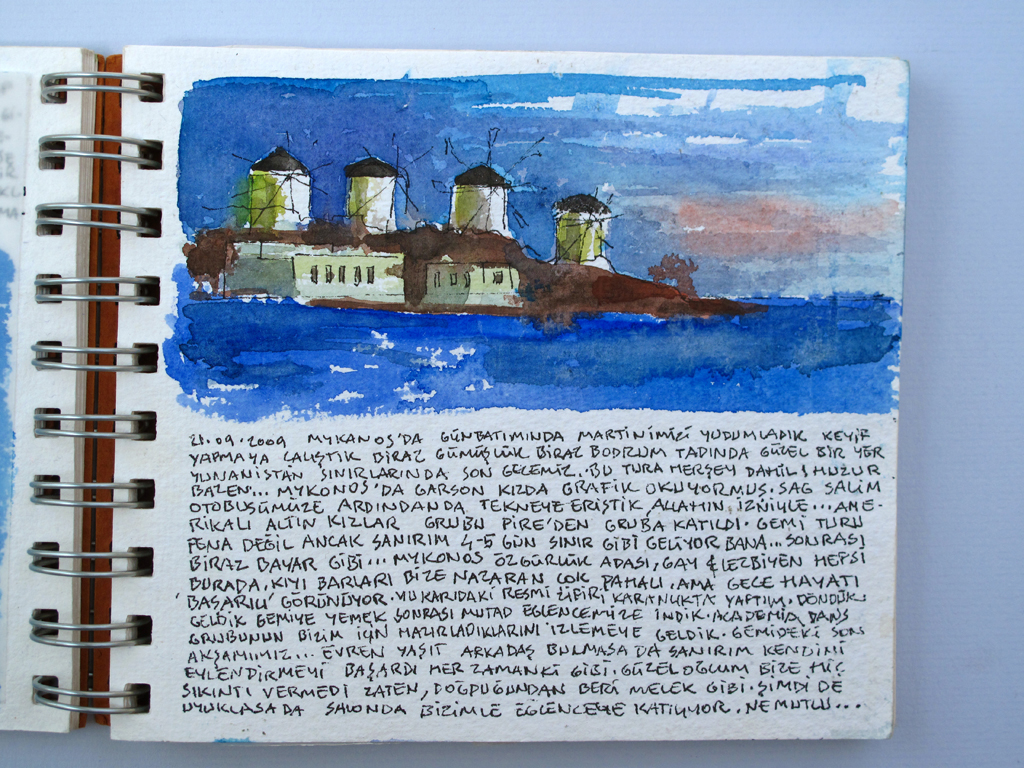 28.09.2009 MYKANOS'DA GÜNBATIMINDA MARTİNİMİZİ YUDUMLADIK KEYİF
YAPMAYA ÇALIŞTIK BİRAZ GÜMÜŞLÜK BİRAZ BODRUM TADINDA GÜZEL BİR YER
YUNANİSTAN SINIRLARINDA SON GECEMİZ.. BU TURA HERŞEY DAHİL! HUZUR
BAZEN... MYKONOS'DA GARSON KIZDA GRAFİK OKUYORMUŞ. SAG SALİM
OTOBÜSÜMÜZE ARDINDANDA TEKNEYE ERİŞTİK ALLAHIN İZNİYLE... AME-
RİKALI ALTIN KIZLAR GRUBU PİRE'DEN GRUBA KATILDI. GEMİ TURU
FENA DEĞİL ANCAK SANIRIM 4-5 GÜN SINIR GİBİ GELİYOR BANA... SONRASI
BİRAZ BAYAR GİBİ... MYKONOS ÖZGÜRLÜK ADASI, GAY & LEZBİYEN HEPSİ
BURADA, KIYI BARLARI BİZE NAZARAN ÇOK PAHALI. AMA GECE HAYATI
'BAŞARILI' GÖRÜNÜYOR. YUKARIDAKİ RESMİ ZİFİRİ KARANLIKTA YAPTIM. DÖNDÜK
GELDİK GEMİYE YEMEK SONRASI MUTAD EĞLENCEMİZE İNDİK. ACADEMIA DANS
GRUBUNUN BİZİM İÇİN HAZIRLADIKLARINI İZLEMEYE GELDİK. GEMİDEKİ SON
AKŞAMIMIZ... EVREN YAŞIT ARKADAŞ BULMASA DA SANIRIM KENDİNİ
EYLENDİRMEYİ BAŞARDI HER ZAMANKİ GİBİ. GÜZEL OĞLUM BİZE HİÇ
SIKINTI VERMEDİ ZATEN, DOĞDUĞUNDAN BERİ MELEK GİBİ. ŞİMDİ DE
UYUKLASA DA SALONDA BİZİMLE EĞLENCEYE KATILIYOR. NE MUTLU...